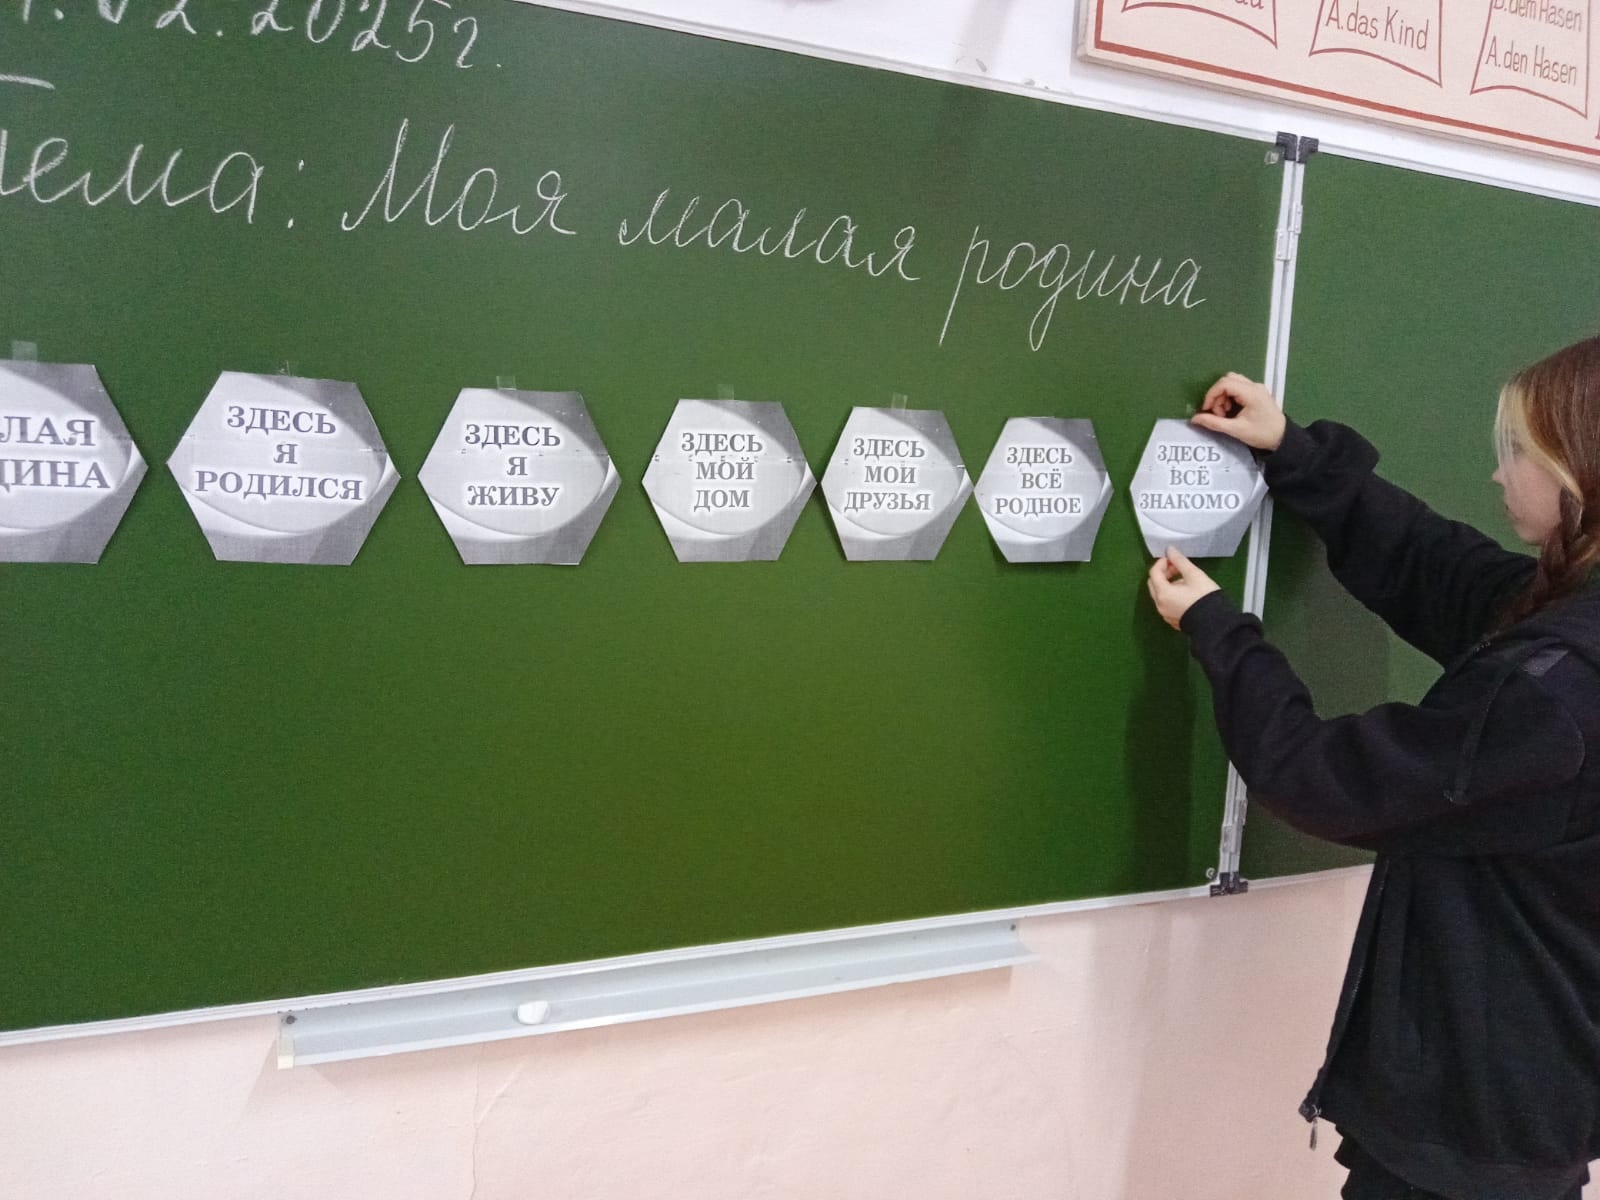 02.2025г.
Тема: Моя малая родина
ЗДЕСЬ
Я
РОДИЛСЯ
ЗДЕСЬ
Я
ЖИВУ
ЗДЕСЬ
МОЙ
ДОМ
ЗДЕСЬ
МОИ
ДРУЗЬЯ
ЗДЕСЬ
ВСЁ
РОДНОЕ
ЗДЕСЬ
ВСЁ
ЗНАКОМО
A. das Kind
D. dem Hasen
A. den Hasen